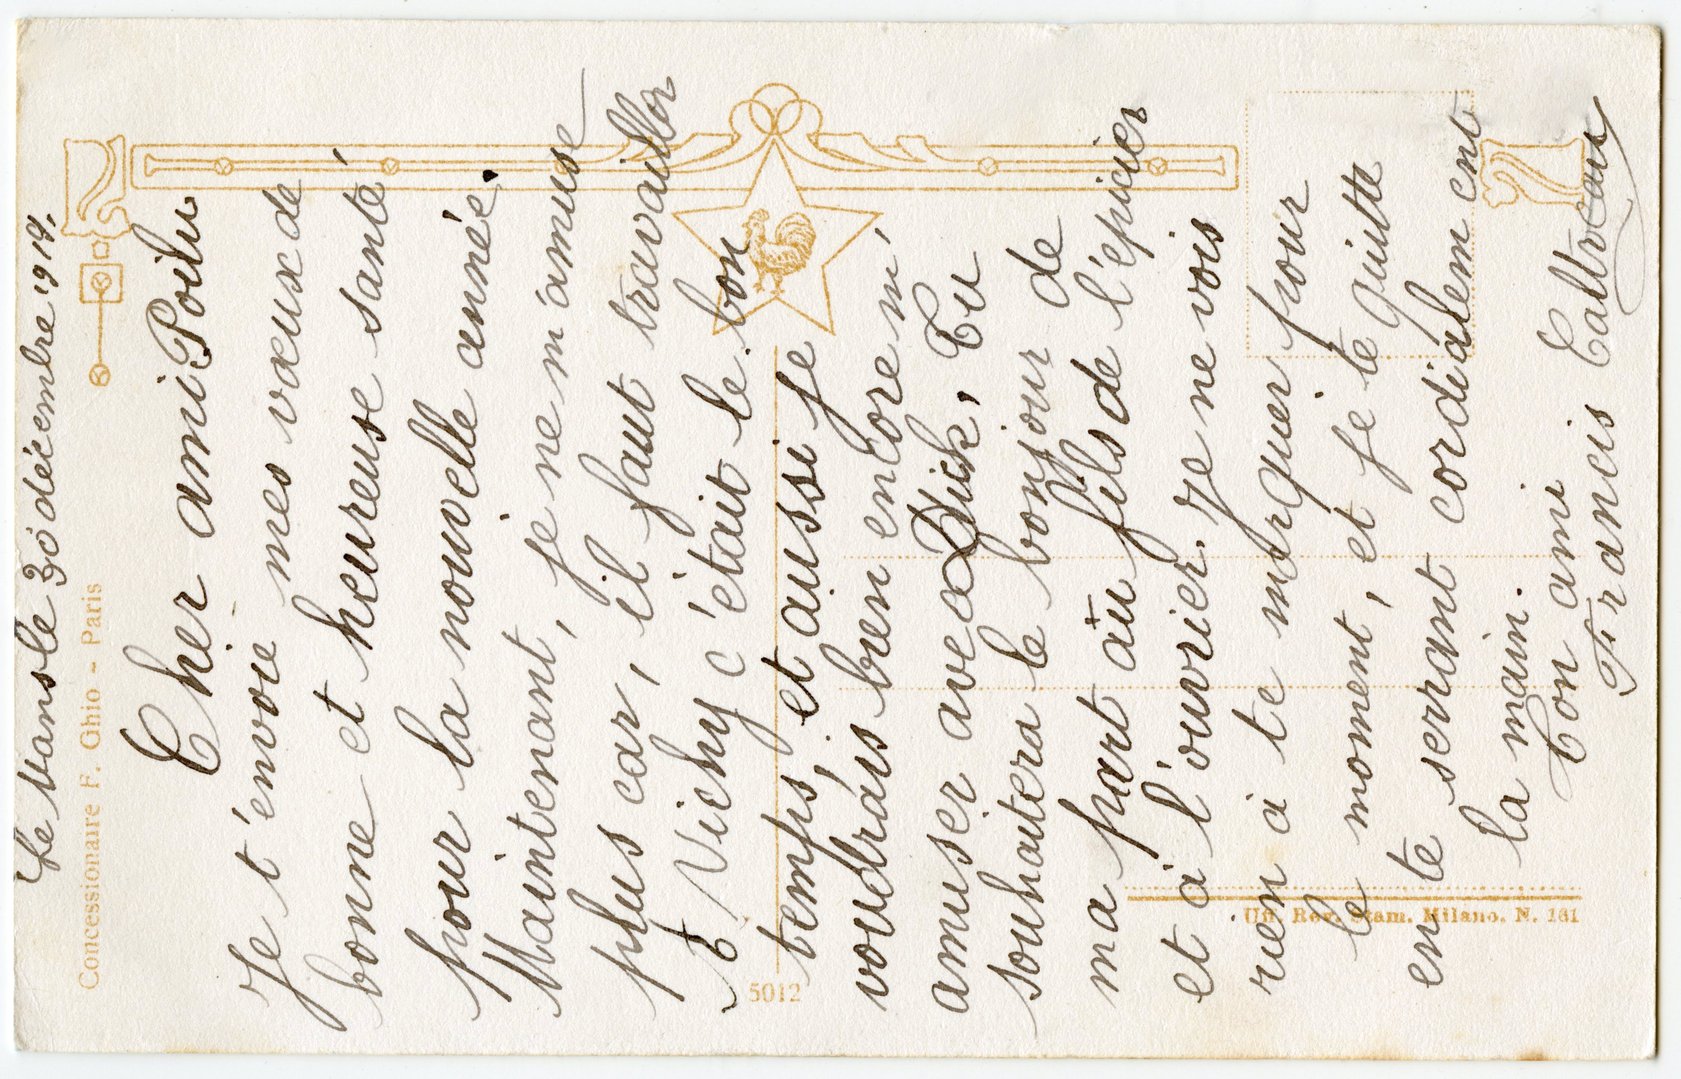 Le Mans le 30 décembre 1914.
Cher ami Poilu
Je t'envoie mes vœux de
bonne et heureuse santé
pour la nouvelle année.
Maintenant, je ne m'amuse
plus car, il faut travailler
à Vichy c'était le bon
temps, et aussi je
voudrais bien encore m'
amuser avec Dick, Tu
souhaitera le bonjour de
ma part au fils de l'épicier
et à l'ouvrier. Je ne vois
rien à te marquer pour
le moment, et je te quitte
en te serrant cordialement
la main.
Ton ami
Francis
Concessionaire F. Ghio - Paris
5012
Uff. Rev. Stam. Milano. N. 181